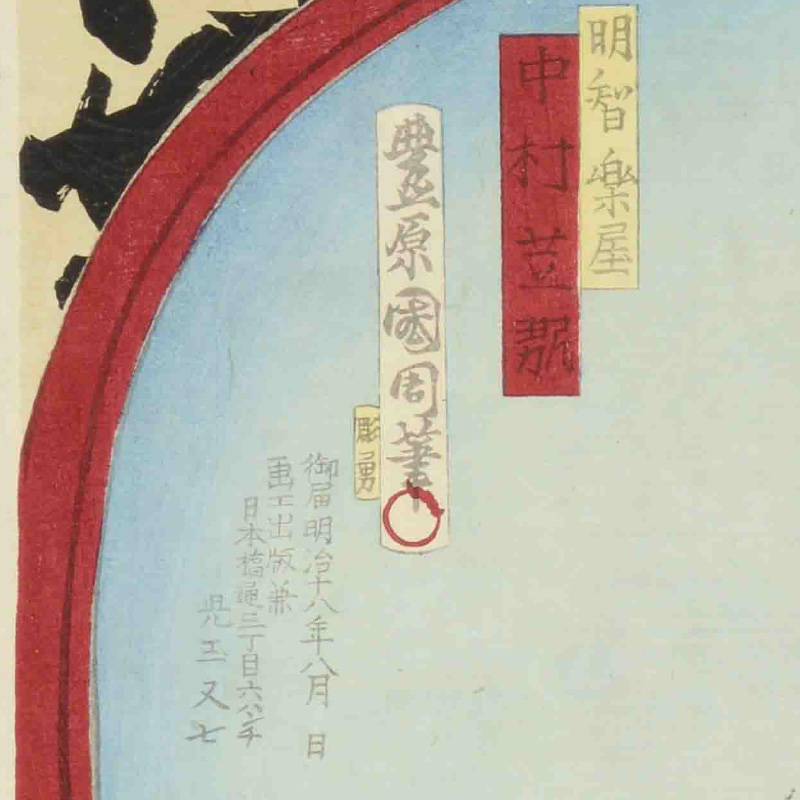 明智樂屋
中村芝
豐原國周筆
彫勇
御届明治十八年八月 日
画工出版兼
日本橋通三丁目六ハンチ
児玉又七